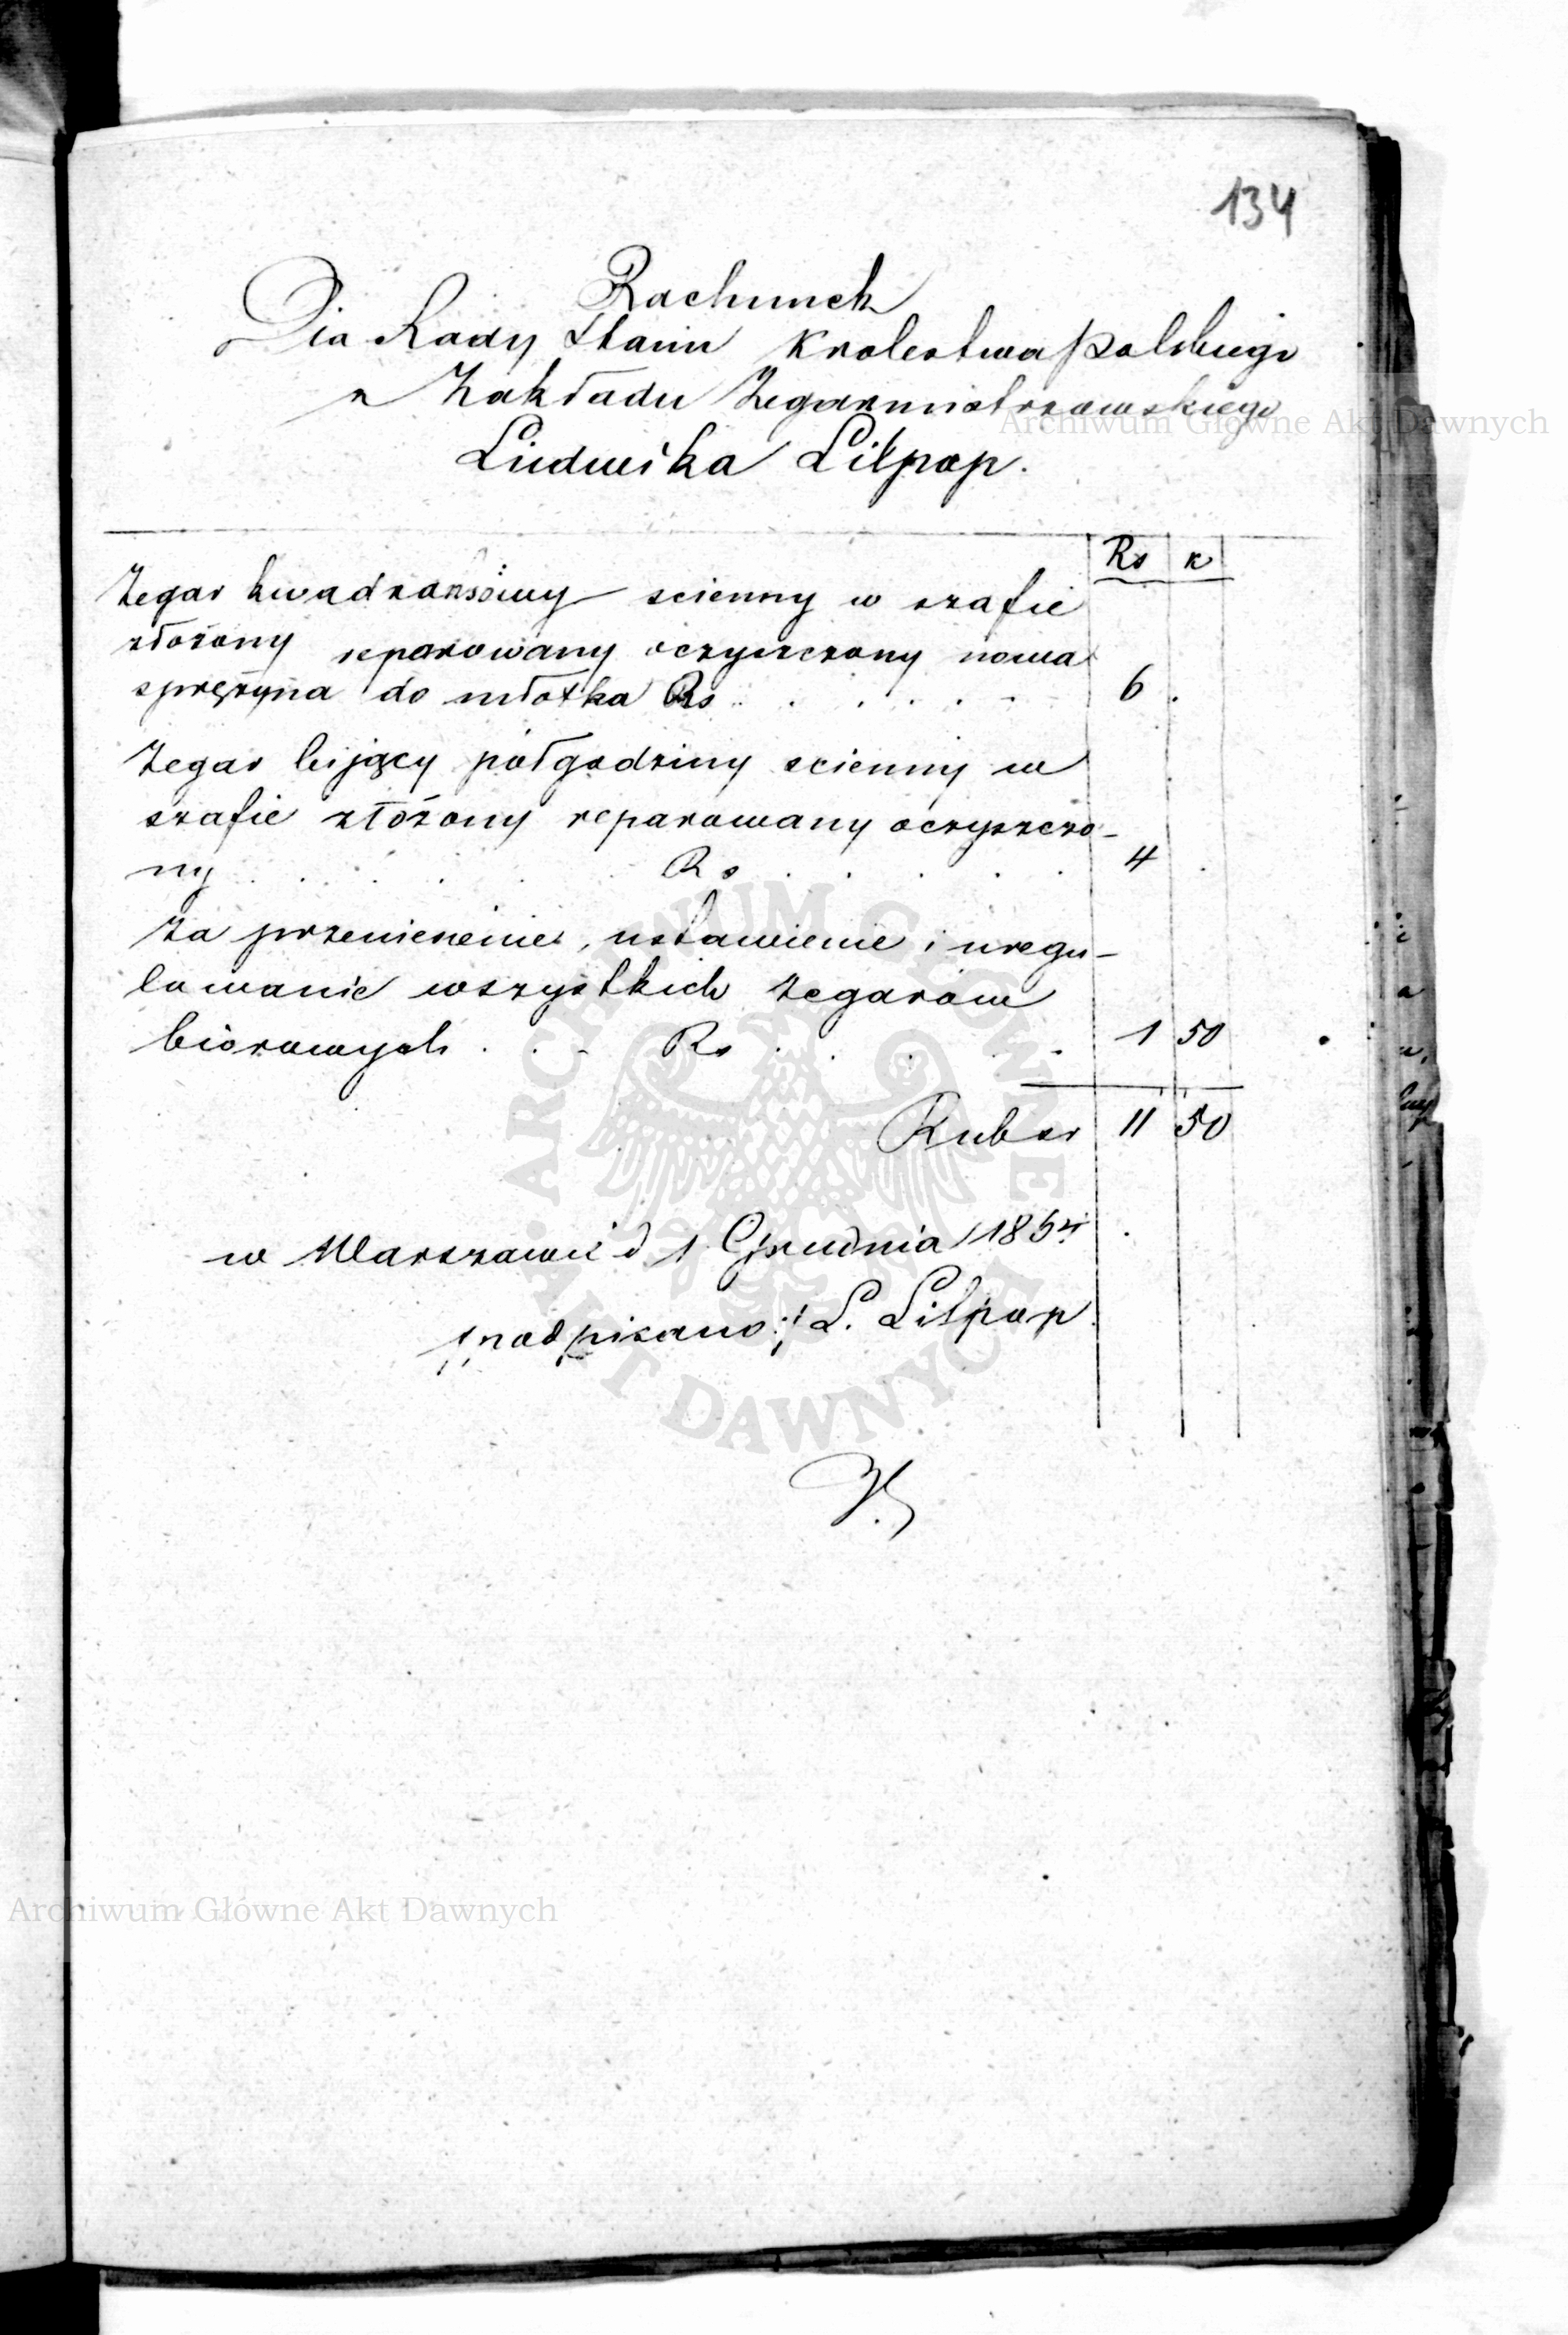 134
Rachunek
Dla Rady Stanu Krolestwa Polskiego
z Zakładu Zegarmistrzowskiego
Archiwum Główne Akt Dawnych
Ludwika Lilpop.
Rs k
Zegar kwadransowy scienny w szafie
złożony reparowany oczyszczony nowa
sprężyna do młotka Rs . . . . . 6 .
Zegar bijący półgodziny scienny w
szafie złożony reparowany oczyszczo-
ny . . . . . Rs . . . . . 4 .
Za przeniesienie, ustawienie i uregu-
lowanie wszystkich zegarów
biórowych . . - Rs . . . . 1 50
Rubsr 11 50
w Warszawie d 1 Grudnia 1864
/podpisano:/ L. Lilpop
ARCHIWUM GŁÓWNE
AKT DAWNYCH
Archiwum Główne Akt Dawnych